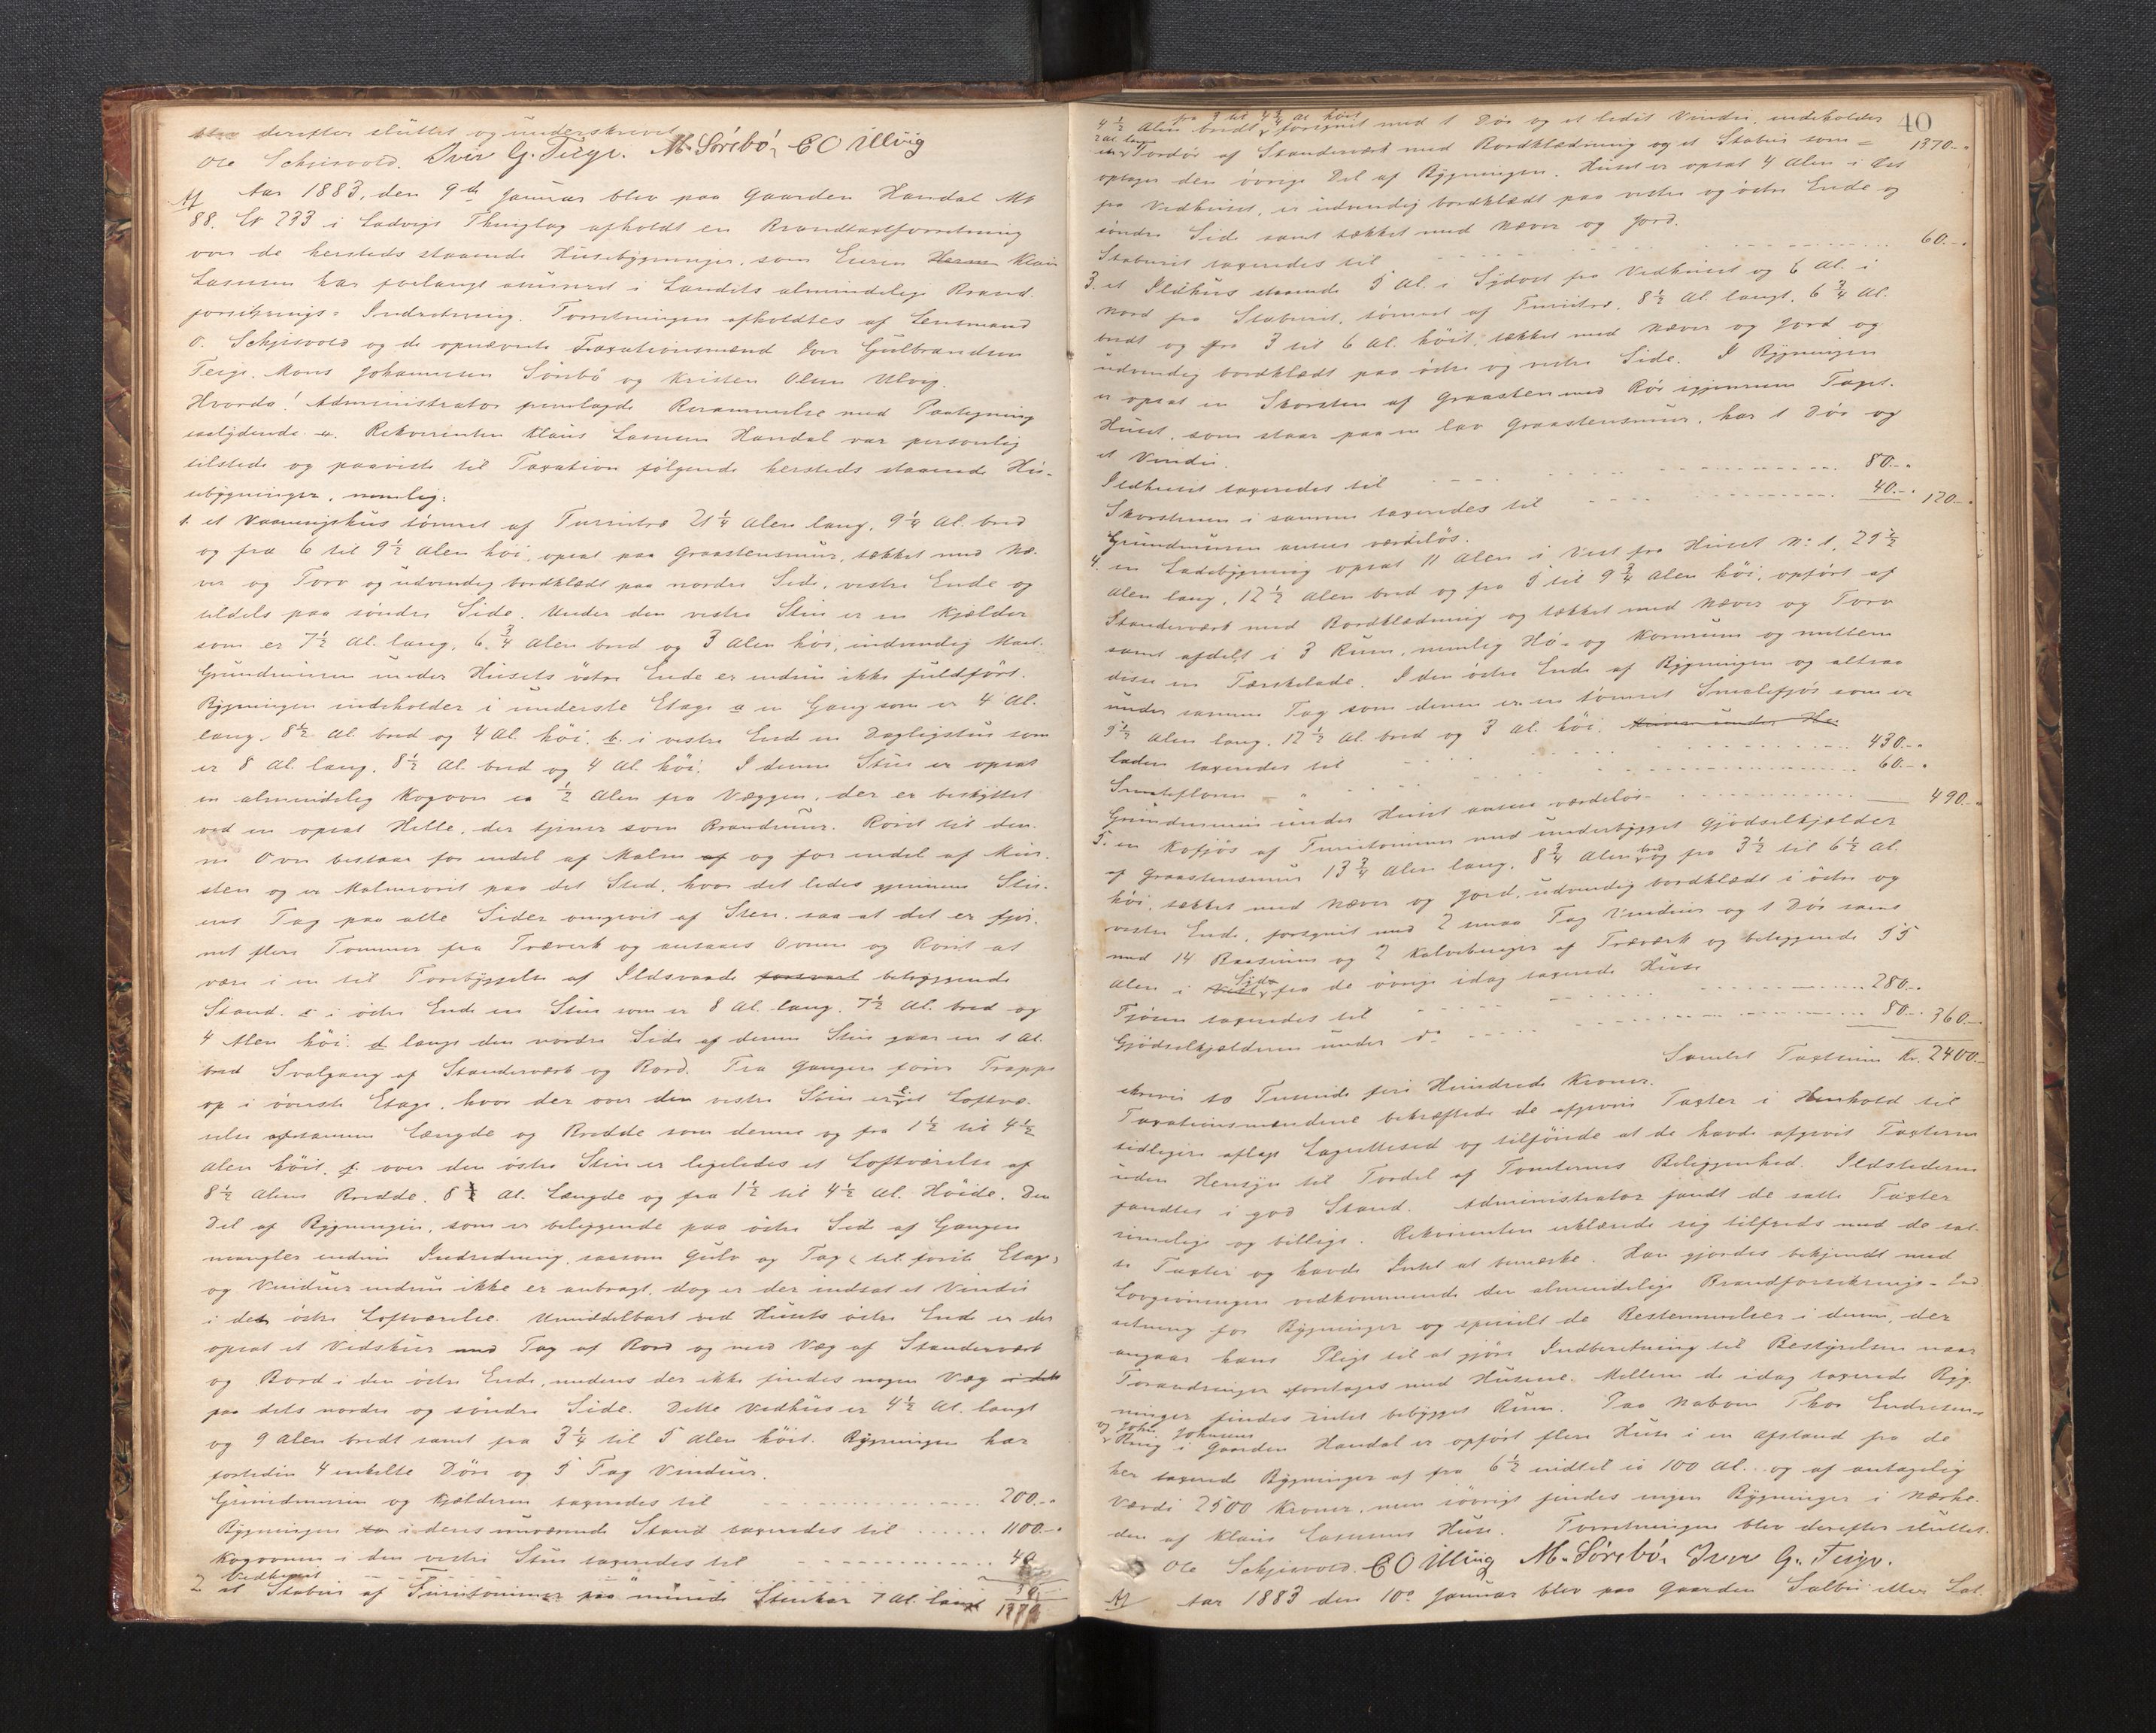 blev derefter sluttet og underskrevet
Ole Schjesvold. Iver G. Teige. M. Sørebø. C O Ulvig
Aar 1883, den 9de Januar blev paa Gaarden Handal Mt
88. Lt 233 i Ladvigs Thinglag afholdt en Brandtaxtforretning
over de hersteds staaende Husebygninger, som Eieren Klaus
Lassesen har forlangt assureret i Landets almindelige Brand-
forsikrings-Indretning. Forretningen afholdtes af Lensmand
O. Schjesvold og de opnævnte Taxationsmænd Iver Gulbrandsen
Teige, Mons Johannesen Sørebø og Kristen Olsen Ulvig.
Hvorda! Administrator fremlagde Berammelse med Paategning
saalydende. Rekvirenten Klaus Lassesen Handal var personlig
tilstede og paaviste til Taxation følgende hersteds staaende Hu-
sebygninger, nemlig:
1. et Vaaningshus tømret af Furretræ 21 1/4 Alen lang, 9 1/4 Al. bred
og fra 6 til 9 1/2 Alen høi, opsat paa Graastensmur, tækket med Næ-
ver og Torv og udvendig bordklædt paa nordre Side, vestre Ende og
tildels paa søndre Side. Under den vestre Stue er en Kjælder
som er 7 1/2 Al. lang, 6 3/4 Alen bred og 3 Alen høi, indvendig Maal.
Grundmuren under Husets østre Ende er endnu ikke fuldført.
Bygningen indeholder i underste Etage a en Gang som er 4 Al.
lang, 8 1/2 Al. bred og 4 Al. høi. b. i vestre Ende en Dagligstue som
er 8 Al. lang, 8 1/2 Al. bred og 4 Al. høi. I denne Stue er opsat
en almindelig Kogovn ca 1/2 Alen fra Væggen, der er beskyttet
ved en opsat Helle, der tjener som Brandmur. Røret til den-
ne Ovn bestaar for endel af Malm og for endel af Mur-
sten og er Malmrøret paa det Sted, hvor det ledes gjennem Stu-
ens Tag paa alle Sider omgivet af Sten, saa at det er fjer-
net flere Tommer fra Træverk og ansaaes Ovnen og Røret at
være i en til Forebyggelse af Ildsvaade betryggende
Stand. c i østre Ende en Stue som er 8 Al. lang, 7 1/2 Al. bred og
4 Alen høi. d langs den nordre Side af denne Stue gaar en 1 Al.
bred Svalgang af Standerværk og Bord. Fra Gangen fører Trappe
op i øverste Etage, hvor der over den vestre Stue er e. et Loftvæ-
relse af samme Længde og Bredde som denne og fra 1 1/2 til 4 1/2
Alen høit, f. over den østre Stue er ligeledes et Loftværelse af
8 1/2 Alens Bredde, 8 Al. Længde og fra 1 1/2 til 4 1/2 Al. Høide. Den
Del af Bygningen, som er beliggende paa østre Side af Gangen
mangler endnu Indredning, saasom Gulv og Tag (til første Etage)
og Vinduer endnu ikke er anbragt, dog er der indsat et Vindu
i det østre Loftværelse. Umiddelbart ved Husets østre Ende er der
opsat et Vedskur med Tag af Bord og med Væg af Standerværk
og Bord i den østre Ende, medens der ikke findes nogen Væg i dets
paa dets nordre og søndre Side. Dette Vedhus er 4 1/2 Al. langt
og 9 Alen bredt samt fra 3 1/4 til 5 Alen høit. Bygningen har
fortiden 4 enkelte Døre og 5 Fag Vinduer.
Grundmuren og Kjælderen taxeredes til 200.-
Bygningen i dens nuværende Stand taxeredes til 1100.-
Kogovnen i den vestre Stue taxeredes til 40
Vedhuset 30
2 et Stabur af Furretømmer paa murede Stenkar 7 Al. langt 1370
40
4 1/2 Alen bredt fra 3 til 4 1/2 Al. høit forsynet med 1 Dør og et lidet Vindu, indeholder
en 2 Al. lang Fordør af Standerværk med Bordklædning og et Stabur som 1370.-
optager den øvrige Del af Bygningen. Huset er opsat 4 Alen i Øst
fra Vedhuset, er udvendig bordklædt paa vestre og østre Ende og
søndre Side samt tækket med Næver og Jord.
Staburet taxeredes til 60.-
3. et Ildhus staaende 5 Al. i Sydost fra Vedhuset og 6 Al. i
Nord fra Staburet, tømret af Furretræ, 8 1/2 Al. langt, 6 3/4 Al.
bredt og fra 3 til 6 Al. høit, tækket med Næver og Jord og
udvendig bordklædt paa østre og vestre Side. I Bygningen
er opsat en Skorsten af Graasten med Rør igjennem Taget.
Huset, som staar paa en lav Graastensmur, har 1 Dør og
et Vindu.
Ildhuset taxeredes til 80.-
Skorstenen i samme taxeredes til 40.- 120.-
Grundmuren ansees værdiløs.
4. en Ladebygning opsat 11 Alen i Vest fra Huset No 1, 29 1/2
Alen lang, 12 1/2 Alen bred og fra 5 til 9 3/4 Alen høi, opført af
Standerværk med Bordklædning og tækket med Næver og Torv
samt afdelt i 3 Rum, nemlig Hø- og Kornrum og mellem
disse en Tærskelade. I den østre Ende af Bygningen og altsaa
under samme Tag som denne er en tømret Smalefjøs som er
5 1/2 Alen lang, 12 1/2 Al. bred og 3 Al. høi.
Laden taxeredes til 430.-
Smalefloren " 60.-
Grundmuren under Huset ansees værdiløs. 490.-
5. en Kofjøs af Furretømmer med underbygget Gjødselkjælder
af Graastensmur 13 3/4 Alen lang, 8 3/4 Alen bred og fra 3 1/2 til 6 1/2 Al.
høi, tækket med Næver og Jord, udvendig bordklædt i østre og
vestre Ende, forsynet med 2 smaa Fag Vinduer og 1 Dør samt
med 14 Baasrum og 2 Kalvebinger af Træværk og beliggende 55
Alen i Syd fra de øvrige idag taxerede Huse
Fjøsen taxeredes til 280.-
Gjødselkjælderen under do 80.- 360.-
Samlet Taxtsum Kr. 2400.-
skriver to Tusinde fire Hundrede Kroner.
Taxationsmændene bekræftede de afgivne Taxter i Henhold til
tidligere aflagt Lagrettesed og tilføiede at de havde afgivet Taxterne
uden Hensyn til Fordel af Tomternes Beliggenhed. Ildstederne
fandtes i god Stand. Administrator fandt de satte Taxter
rimelige og billige. Rekvirenten erklærede sig tilfreds med de sat-
te Taxter og havde Intet at bemærke. Han gjordes bekjendt med
Lovgivningen vedkommende den almindelige Brandforsikrings-Ind
retning for Bygninger og specielt de Bestemmelser i denne, der
angaar hans Pligt til at gjøre Indberetning til Bestyrelsen naar
Forandringer foretages med Husene. Mellem de idag taxerede Byg-
ninger findes intet bebygget Rum. Paa Naboen Thor Endresens
og Johs. Johnsens Brug i Gaarden Handal er opført flere Huse i en Afstand fra de
her taxerede Bygninger af fra 6 1/2 indtil ca 100 Al. og af antagelig
Værdi 2500 Kroner, men iøvrigt findes ingen Bygninger i Nærhe-
den af Klaus Lassesens Huse. Forretningen blev derefter sluttet.
Ole Schjesvold. C O Ulvig M. Sørebø. Iver G. Teige.
Aar 1883 den 10de Januar blev paa Gaarden Salbu eller Sal-